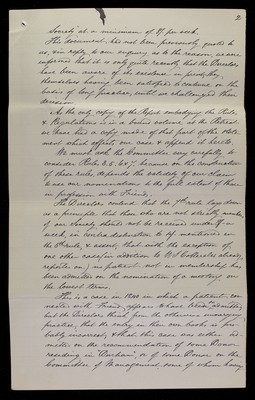 2
Society at a minimum of 4/ per week.
This document has not been previously quoted to
us, & in reply to our enquiry as to the reason, we are
informed that it is only quite recently that the Directors
have been aware of its existence, in practice, they
themselves having been satisfied to continue on the
basis of long practice, until we challenged their
decision.
As the only copy of the Report containing the Rules
& Regulations is in a bound volume, at the Retreat
we have had a copy made of that part of the state-
ment which affects our case & append it herewith.
We must ask the Committee very carefully to
consider Rules 3. 5. 6 & 7. because on the construction
of these rules, depends the validity of our claim
to use our nominations to the full extent of those
in profession with Friends.
The Directors contend that the 7th rule lays down
as a principle that those who are not strictly members
of our Society should not be received under 8/ a
week, in contradistinction to 4/ mentioned in
the 5th rule, & assert, that with the exception of
one other case (in addition to
reported on) no patient not in membership has
been admitted on the nomination of a meeting on
the lowest terms.
This is a case in 1840 in which a patient, con-
nected with Friends, appears to have been admitted,
but the Directors think from the otherwise unvarying
practice, that the entry in their own books is pro-
bably incorrect, & that this case was either ad-
mitted on the recommendation of some Donor
residing in Durham, or of some Donor on the
Committee of Management some of whom having